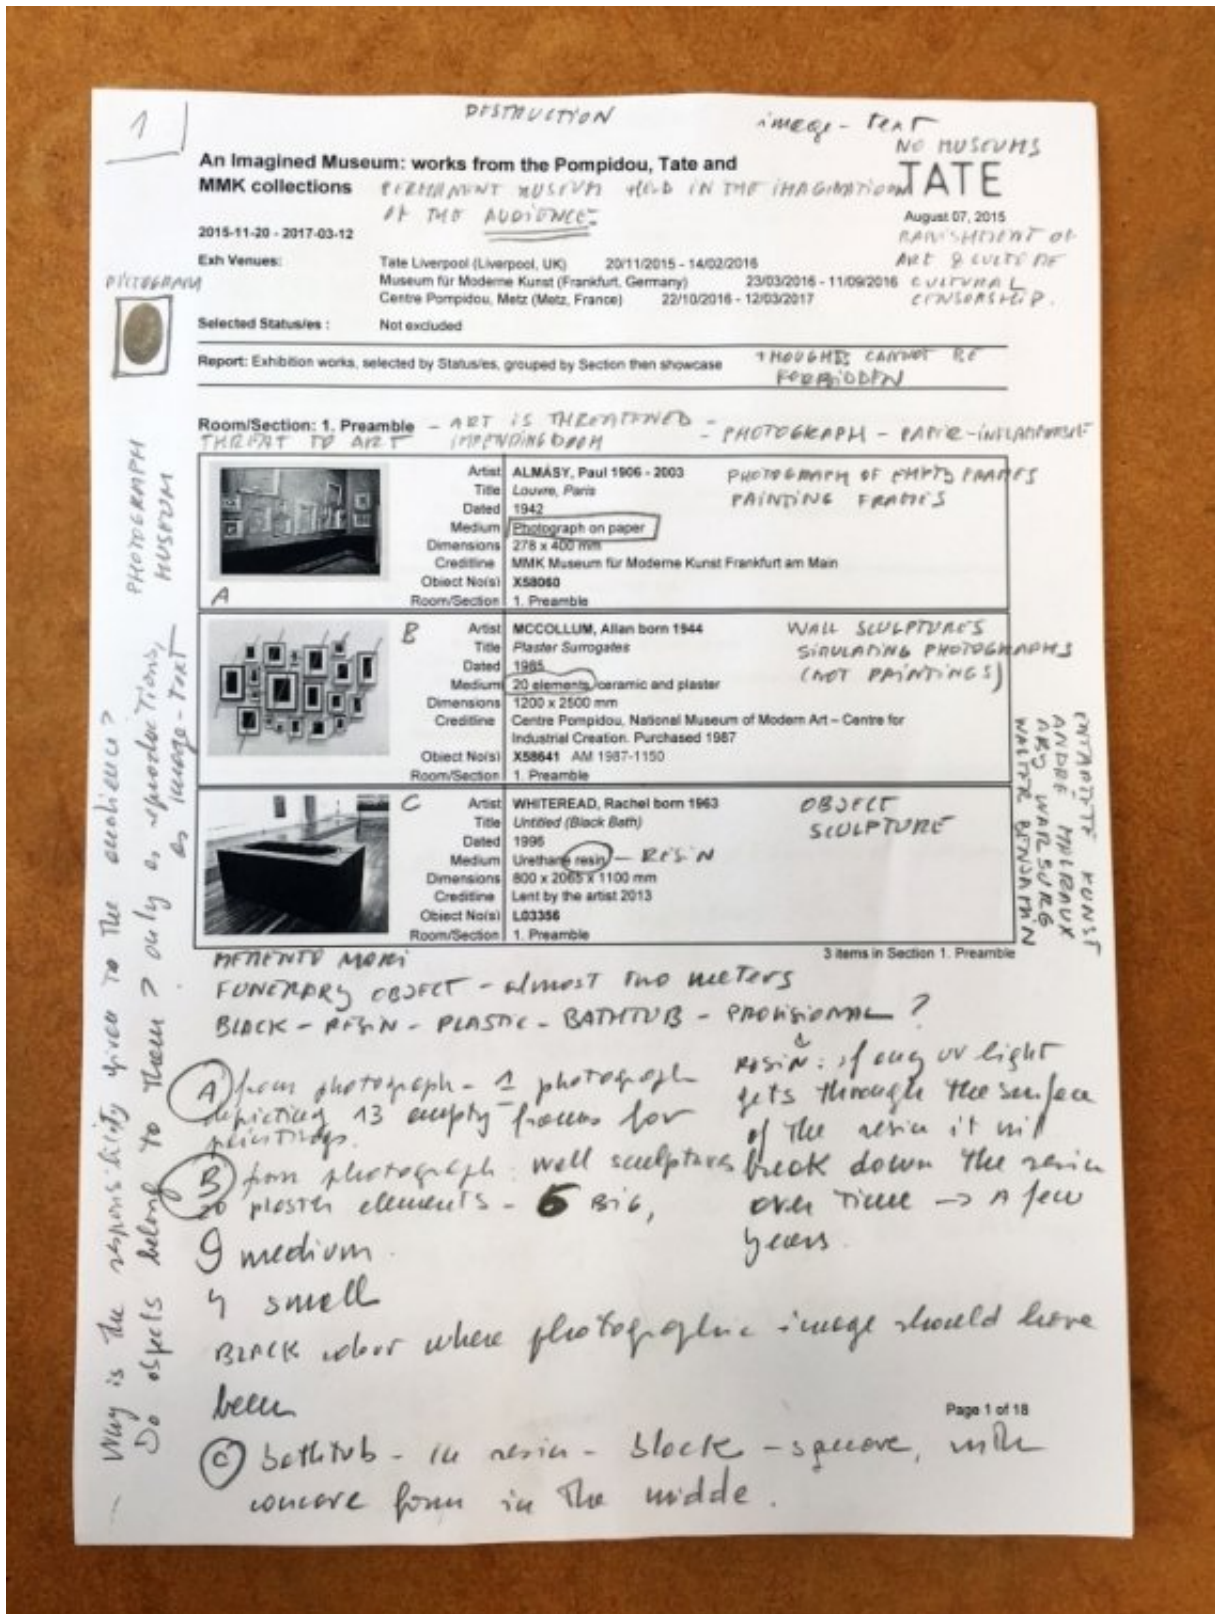 1
DESTRUCTION
image - text
NO MUSEUMS
An Imagined Museum: works from the Pompidou, Tate and
MMK collections
PERMANENT MUSEUM HELD IN THE IMAGINATION
OF THE AUDIENCE
TATE
2015-11-20 - 2017-03-12
August 07, 2015
BANISHMENT OF
ART & CULTURE
CULTURAL
CENSORSHIP.
Exh Venues:
Tate Liverpool (Liverpool, UK) 20/11/2015 - 14/02/2016
Museum für Moderne Kunst (Frankfurt, Germany) 23/03/2016 - 11/09/2016
Centre Pompidou, Metz (Metz, France) 22/10/2016 - 12/03/2017
PICTOGRAM
Selected Status/es : Not excluded
Report: Exhibition works, selected by Status/es, grouped by Section then showcase
THOUGHTS CANNOT BE
FORBIDDEN
Room/Section: 1. Preamble - ART IS THREATENED -
THREAT TO ART IMPENDING DOOM
- PHOTOGRAPH - PAPER - INFLAMMABLE
A
Artist ALMÁSY, Paul 1906 - 2003
Title Louvre, Paris
Dated 1942
Medium Photograph on paper
Dimensions 278 x 400 mm
Creditline MMK Museum für Moderne Kunst Frankfurt am Main
Object No(s) X58060
Room/Section 1. Preamble
PHOTOGRAPH OF EMPTY FRAMES
PAINTING FRAMES
B
Artist MCCOLLUM, Allan born 1944
Title Plaster Surrogates
Dated 1985
Medium 20 elements, ceramic and plaster
Dimensions 1200 x 2500 mm
Creditline Centre Pompidou, National Museum of Modern Art – Centre for
Industrial Creation. Purchased 1987
Object No(s) X58641 AM 1987-1150
Room/Section 1. Preamble
WALL SCULPTURES
SIMULATING PHOTOGRAPHS
(NOT PAINTINGS)
C
Artist WHITEREAD, Rachel born 1963
Title Untitled (Black Bath)
Dated 1996
Medium Urethane resin - RESIN
Dimensions 800 x 2065 x 1100 mm
Creditline Lent by the artist 2013
Object No(s) L03356
Room/Section 1. Preamble
OBJECT
SCULPTURE
3 items in Section 1. Preamble
ENTARTETE KUNST
ANDRÉ MALRAUX
ABY WARBURG
WALTER BENJAMIN
PHOTOGRAPH
MUSEUM
Why is the responsibility given to the audience?
Do objects belong to them? only as reproductions,
as image-text
MEMENTO MORI
FUNERARY OBJECT - almost two meters
BLACK - RESIN - PLASTIC - BATHTUB - PROVISIONAL ?
A from photograph - 1 photograph
depicting 13 empty frames for
paintings.
B from photograph: wall sculptures
20 plaster elements - 6 BIG,
9 medium.
4 small
BLACK colour where photographic image should have
been
RESIN: if any UV light
gets through the surface
of the resin it will
break down the resin
over time -> A few
years.
C bathtub - in resin - black - square, with
concave form in the midde.
Page 1 of 18